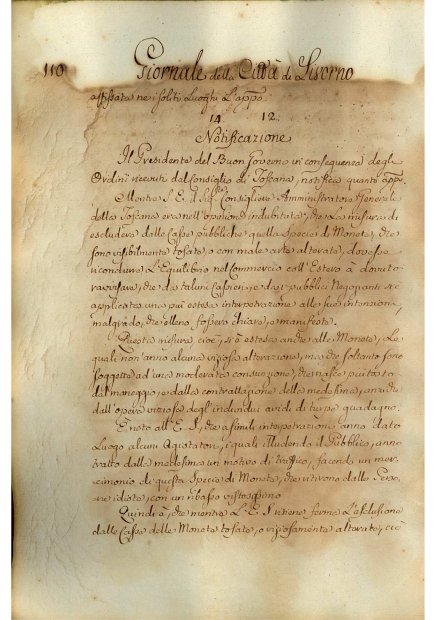 110 Giornale della Città di Livorno
affissata ne i soliti Luoghi L'appo
14 12
Notificazione
Il Presidente del Buon Governo in consequenza degli
Ordini ricevuti dal Consiglio di Toscana, notifica quanto app.
Mentre S. E. il Sig. Consigliere Amministratore Generale
della Toscana era nell'opinione indubitata, che La misura di
escludere dalle Casse pubbliche quella Specie di Monete, che
sono visibilmente tosate, o con male arte alterate, dovesse
ricondurre L'Equilibrio nel commercio coll'Estero à dovuto
ravvisare, che da taluni Cassieri, e da i pubblici Negozianti si è
applicata una più estesa interpetrazione alle sue intenzioni,
malgrado, che elleno fossero chiare, e manifeste.
Questa misura, cioè, si è estesa anche alle Monete, Le
quali non anno alcuna viziosa alterazione, ma che soltanto sono
soggette ad una moderata consunzione, che nasce piuttosto
dal maneggio, e dalla contrattazione delle medesime, anziche
dall'opera viziosa degli individui avidi di turpe guadagno.
È noto all'E. S., che a simili interpetrazioni anno dato
Luogo alcuni Agiotatori, i quali Illudendo il Pubblico, anno
tratto dalle medesime un motivo di traffico, facendo un mer-
cimonio di questa Specie di Monete, che ritirono dalle Perso-
ne idiote, con un ribasso vistosissimo
Quindi è, che mentre L'E. S. ritiene ferma L'esclusione
dalle Casse delle Monete tosate, o viziosamente alterate, ciò